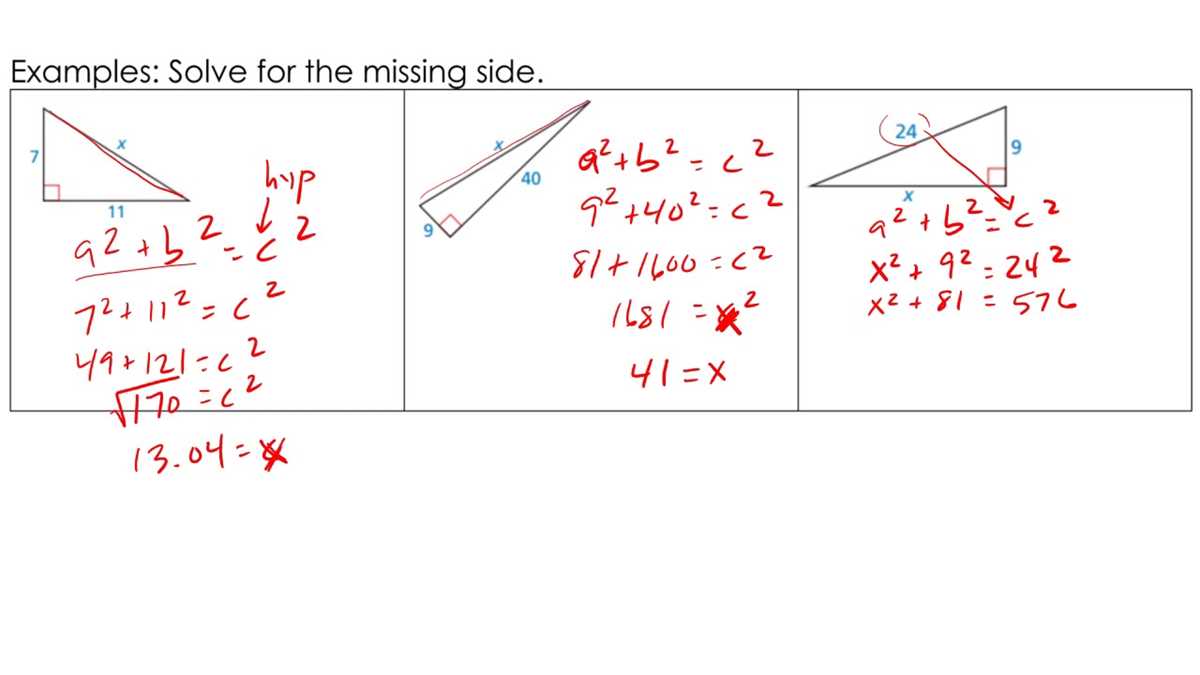 Examples: Solve for the missing side.
7
x
11
hyp
a² + b² = c²
7² + 11² = c²
49 + 121 = c²
√170 = c²
13.04 = x
x
40
9
a² + b² = c²
9² + 40² = c²
81 + 1600 = c²
1681 = x²
41 = x
24
9
x
a² + b² = c²
x² + 9² = 24²
x² + 81 = 576